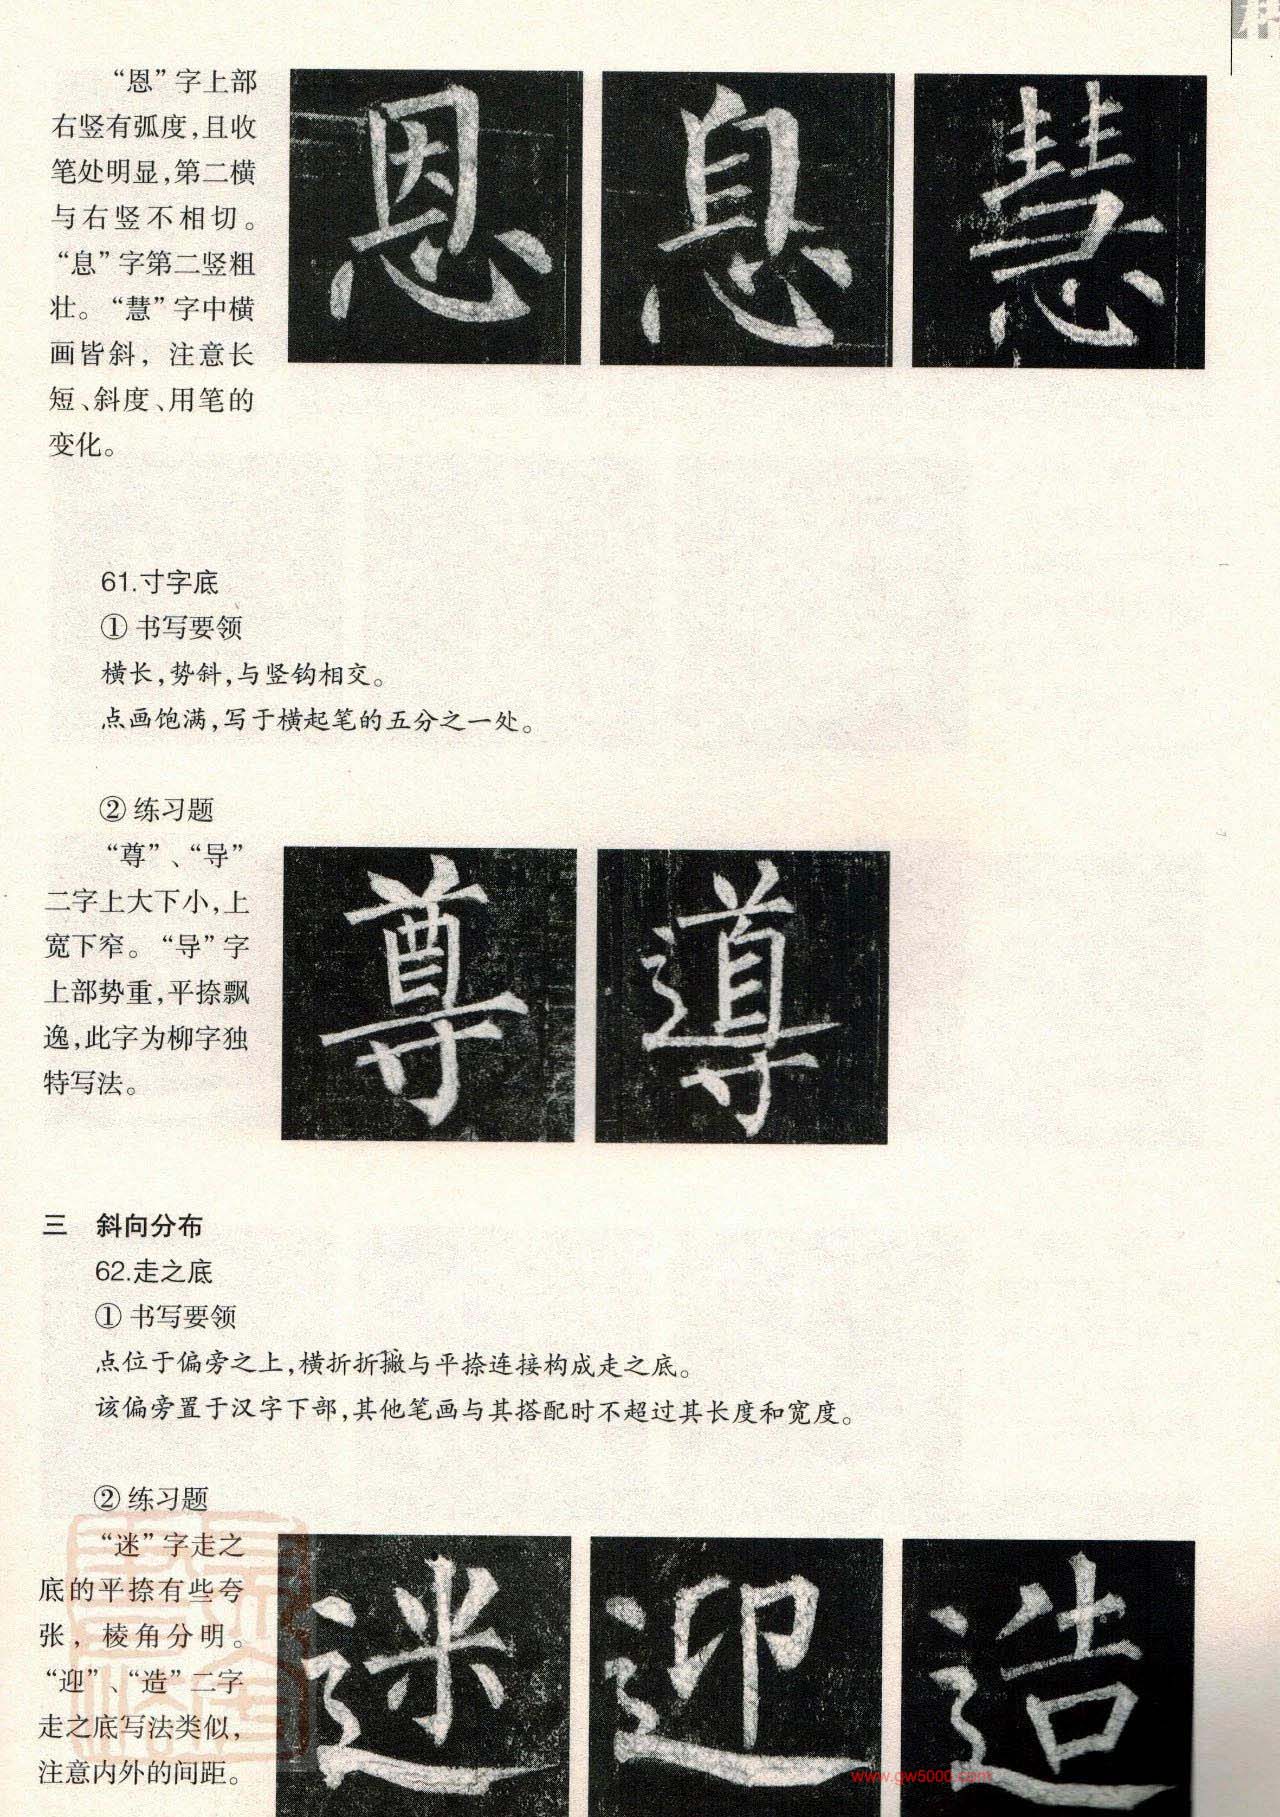 “恩”字上部
右竖有弧度,且收
笔处明显,第二横
与右竖不相切。
“息”字第二竖粗
壮。“慧”字中横
画皆斜，注意长
短、斜度、用笔的
变化。
恩 息 慧
61.寸字底
① 书写要领
横长,势斜,与竖钩相交。
点画饱满,写于横起笔的五分之一处。
② 练习题
“尊”、“导”
二字上大下小,上
宽下窄。“导”字
上部势重,平捺飘
逸,此字为柳字独
特写法。
尊 導
三 斜向分布
62.走之底
① 书写要领
点位于偏旁之上,横折折撇与平捺连接构成走之底。
该偏旁置于汉字下部,其他笔画与其搭配时不超过其长度和宽度。
② 练习题
“迷”字走之
底的平捺有些夸
张，棱角分明。
“迎”、“造”二字
走之底写法类似,
注意内外的间距。
迷 迎 造
www.gw5000.com